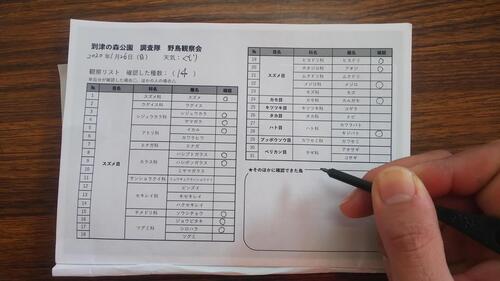 到津の森公園 調査隊 野鳥観察会
2020年1月26日(日) 天気:くもり
観察リスト 確認した種数:( 14 )
№ 目名 科名 種名 確認
1 スズメ目 スズメ科 スズメ ○
2 ウグイス科 ウグイス
3 シジュウカラ科 シジュウカラ ○
4 ヤマガラ ○
5 アトリ科 イカル ○
6 カワラヒワ
7 エナガ科 エナガ
8 カラス科 ハシブトガラス ○
9 ハシボソガラス ○
10 ミヤマガラス
11 サンショウクイ科 リュウキュウサンショウクイ
12 セキレイ科 ビンズイ
13 キセキレイ
14 ハクセキレイ
15 チメドリ科 ソウシチョウ ○
16 ツグミ科 ジョウビタキ ○
17 シロハラ ○
18 ツグミ
№ 目名 科名 種名 確認
19 スズメ目 ヒヨドリ科 ヒヨドリ ○
20 ホオジロ科 アオジ ○
21 ムクドリ科 ムクドリ
22 メジロ科 メジロ ○
23 モズ科 モズ
24 カモ目 カモ科 カルガモ ○
25 キツツキ目 キツツキ科 コゲラ
26 タカ目 タカ科 トビ
27 ハト目 ハト科 カワラバト
28 キジバト ○
29 ブッポウソウ目 カワセミ科 カワセミ
30 ペリカン目 サギ科 アオサギ
31 コサギ
★そのほかに確認できた鳥